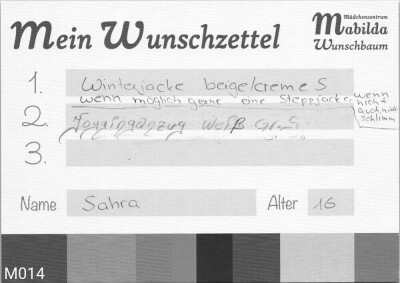 Mein Wunschzettel
Mädchenzentrum
Mabilda
Wunschbaum
1. Winterjacke beige/creme S
wenn möglich gerne eine Steppjacke wenn
nicht
auch nicht
schlimm
2. Jogginganzug weiß
3.
Name Sahra Alter 16
M014